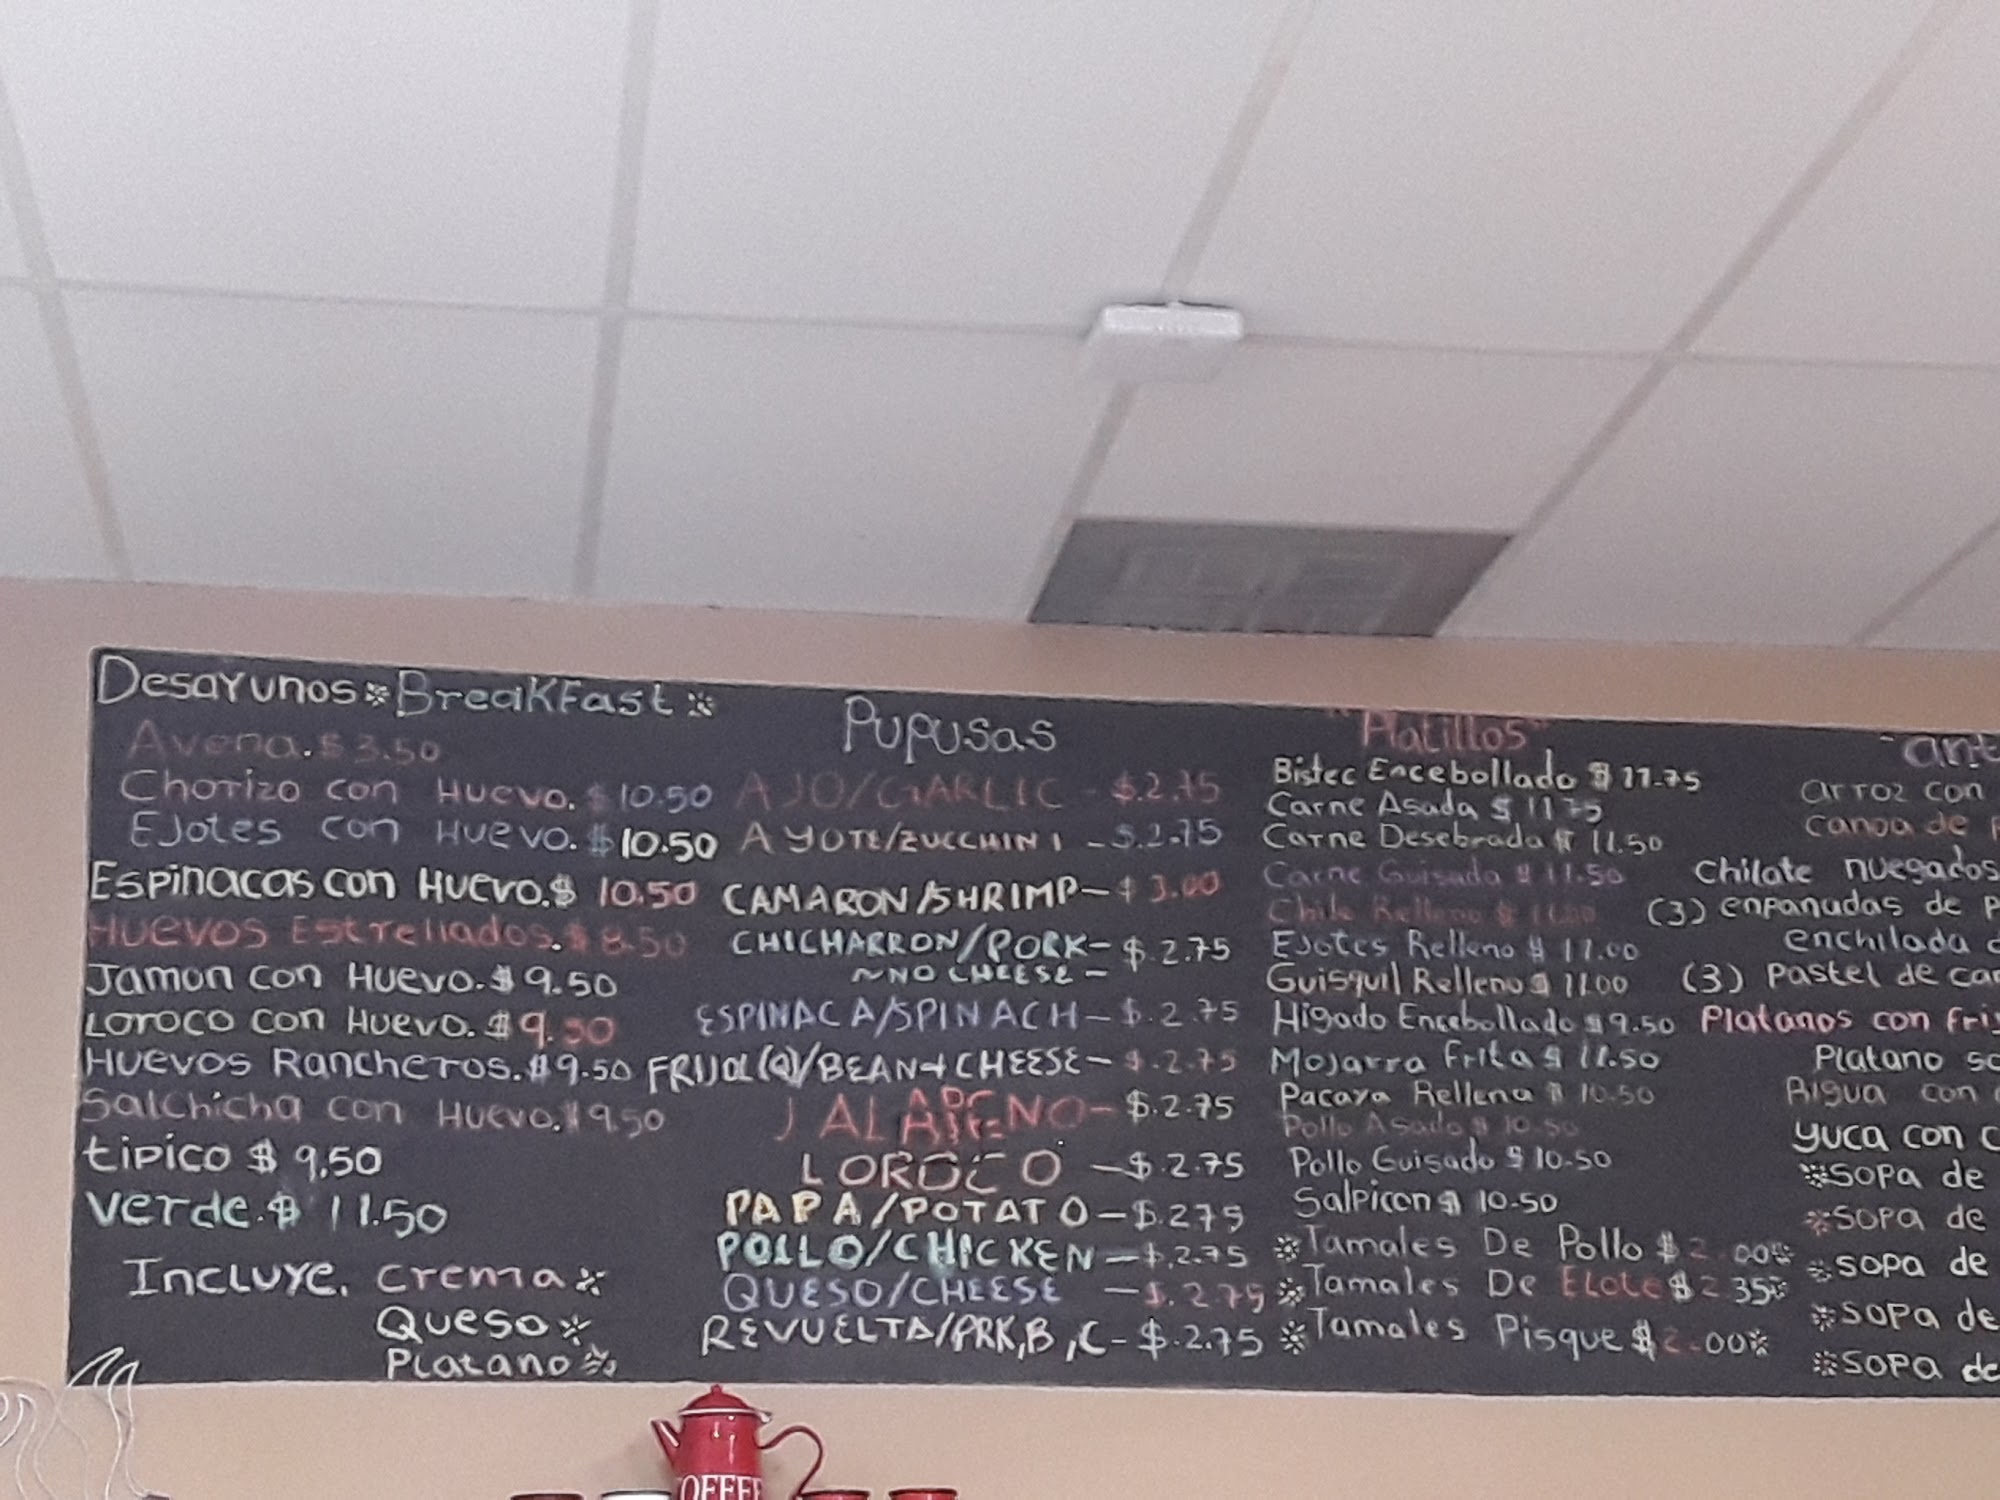 Desayunos BreakFast
Avena. $3.50
Chorizo con Huevo. $10.50
EJotes con Huevo. $10.50
Espinacas con Huevo. $10.50
Huevos Estrellados. $8.50
Jamon con Huevo. $9.50
Loroco con Huevo. $9.50
Huevos Rancheros. $9.50
Salchicha con Huevo. $9.50
tipico $9.50
verde. $11.50
Incluye. crema
Queso
Platano
Pupusas
AJO/GARLIC - $.2.75
AYOTE/ZUCCHINI - $.2.75
CAMARON/SHRIMP - $3.00
CHICHARRON/PORK - $.2.75
~NO CHEESE-
ESPINACA/SPINACH - $.2.75
FRIJOL(Q)/BEAN+CHEESE - $.2.75
JALAPENO - $.2.75
LOROCO - $.2.75
PAPA/POTATO - $.275
POLLO/CHICKEN - $.2.75
QUESO/CHEESE - $.2.75
REVUELTA/PRK,B,C - $.2.75
"Platillos"
Bistec Encebollado $11.75
Carne Asada $11.75
Carne Desebrada $11.50
Carne Guisada $11.50
Chile Relleno
EJotes Relleno $11.00
Guisquil Relleno $11.00
Higado Encebollado $9.50
MoJarra Frita $11.50
Pacaya Rellena $10.50
Pollo Asado $10.50
Pollo Guisado $10.50
Salpicon $10.50
Tamales De Pollo $2.00
Tamales De Elote $2.35
Tamales Pisque $2.00
arroz con
canoa de
Chilate nuegados
(3) enpanadas de
enchilada
(3) Pastel de
Platanos con
Platano
con
yuca con
sopa de
sopa de
sopa de
sopa de
sopa de
COFFEE